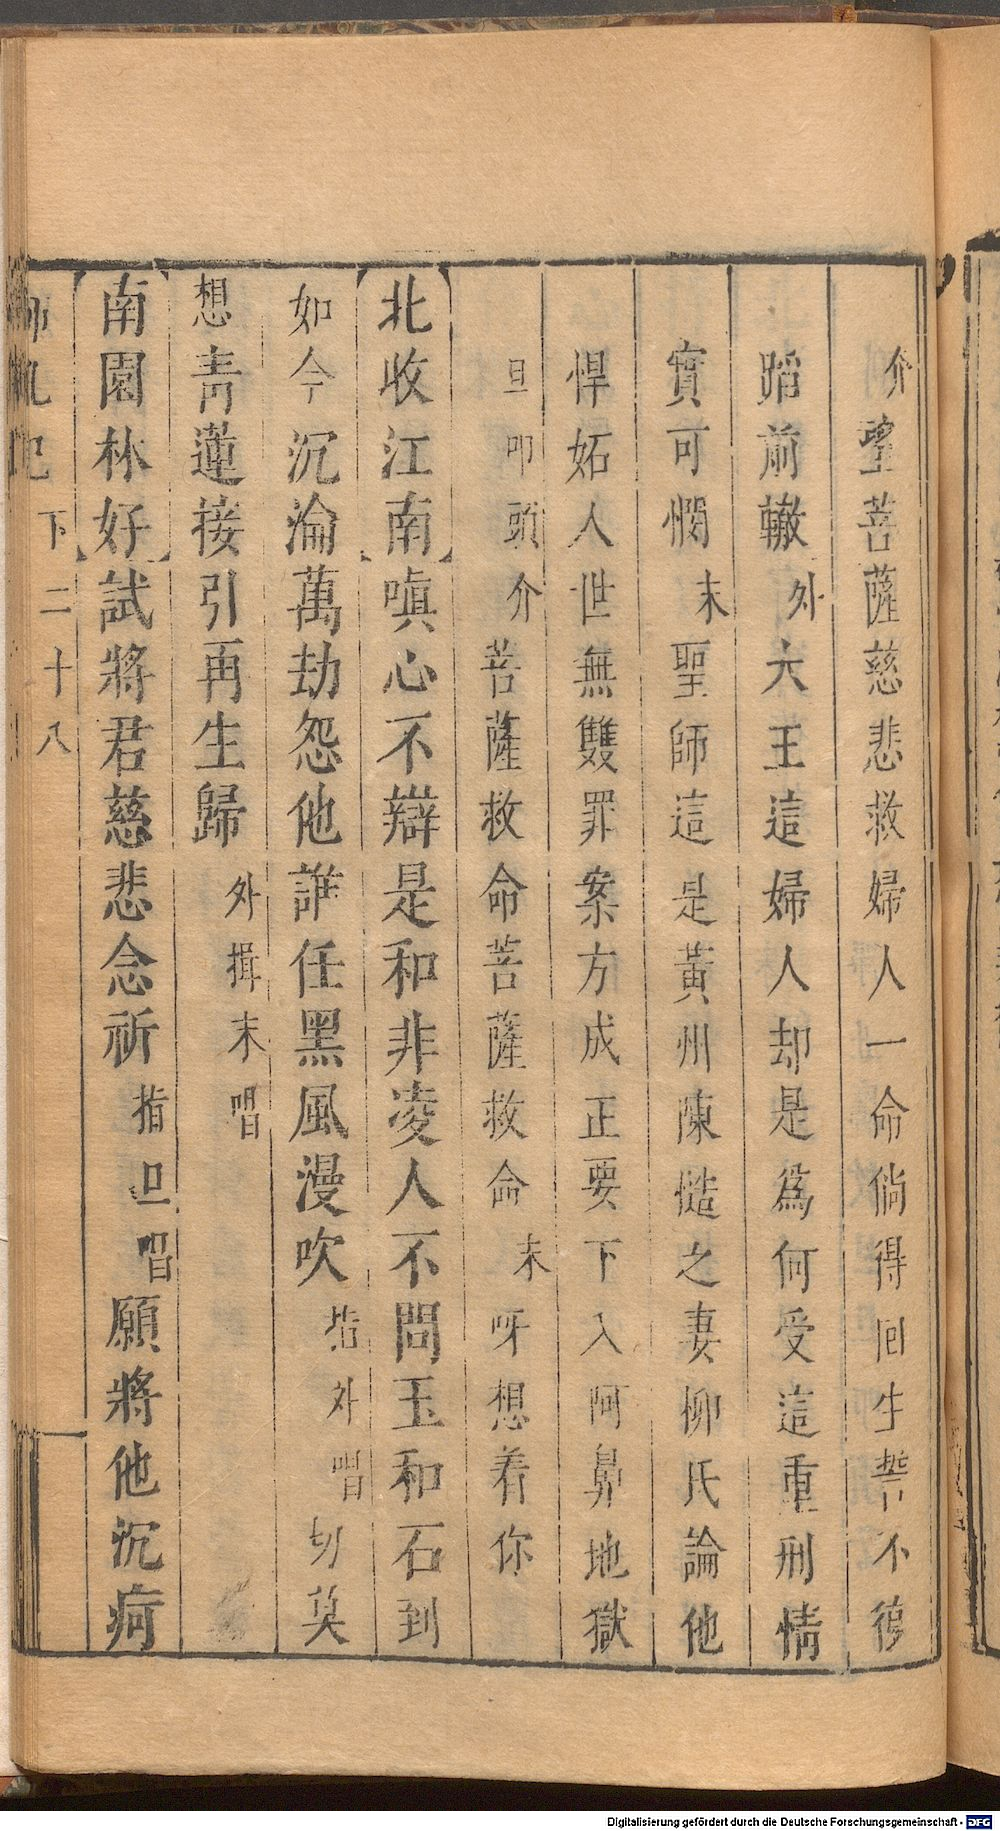 介望菩薩慈悲救婦人一命倘得回生誓不復
蹈前轍外大王這婦人却是爲何受這重刑情
實可憫末聖師這是黃州陳慥之妻柳氏論他
悍妬人世無雙罪案方成正要下入阿鼻地獄
旦叩頭介菩薩救命菩薩救命末呀想着你
【北收江南】嗔心不辯是和非凌人不問玉和石到
如今沉淪萬劫怨他誰任黑風漫吹指外唱切莫
想靑蓮接引再生歸外揖末唱
【南園林好】試將君慈悲念祈指旦唱願將他沉疴
獅吼記 下 二十八
Digitalisierung gefördert durch die Deutsche Forschungsgemeinschaft - DFG